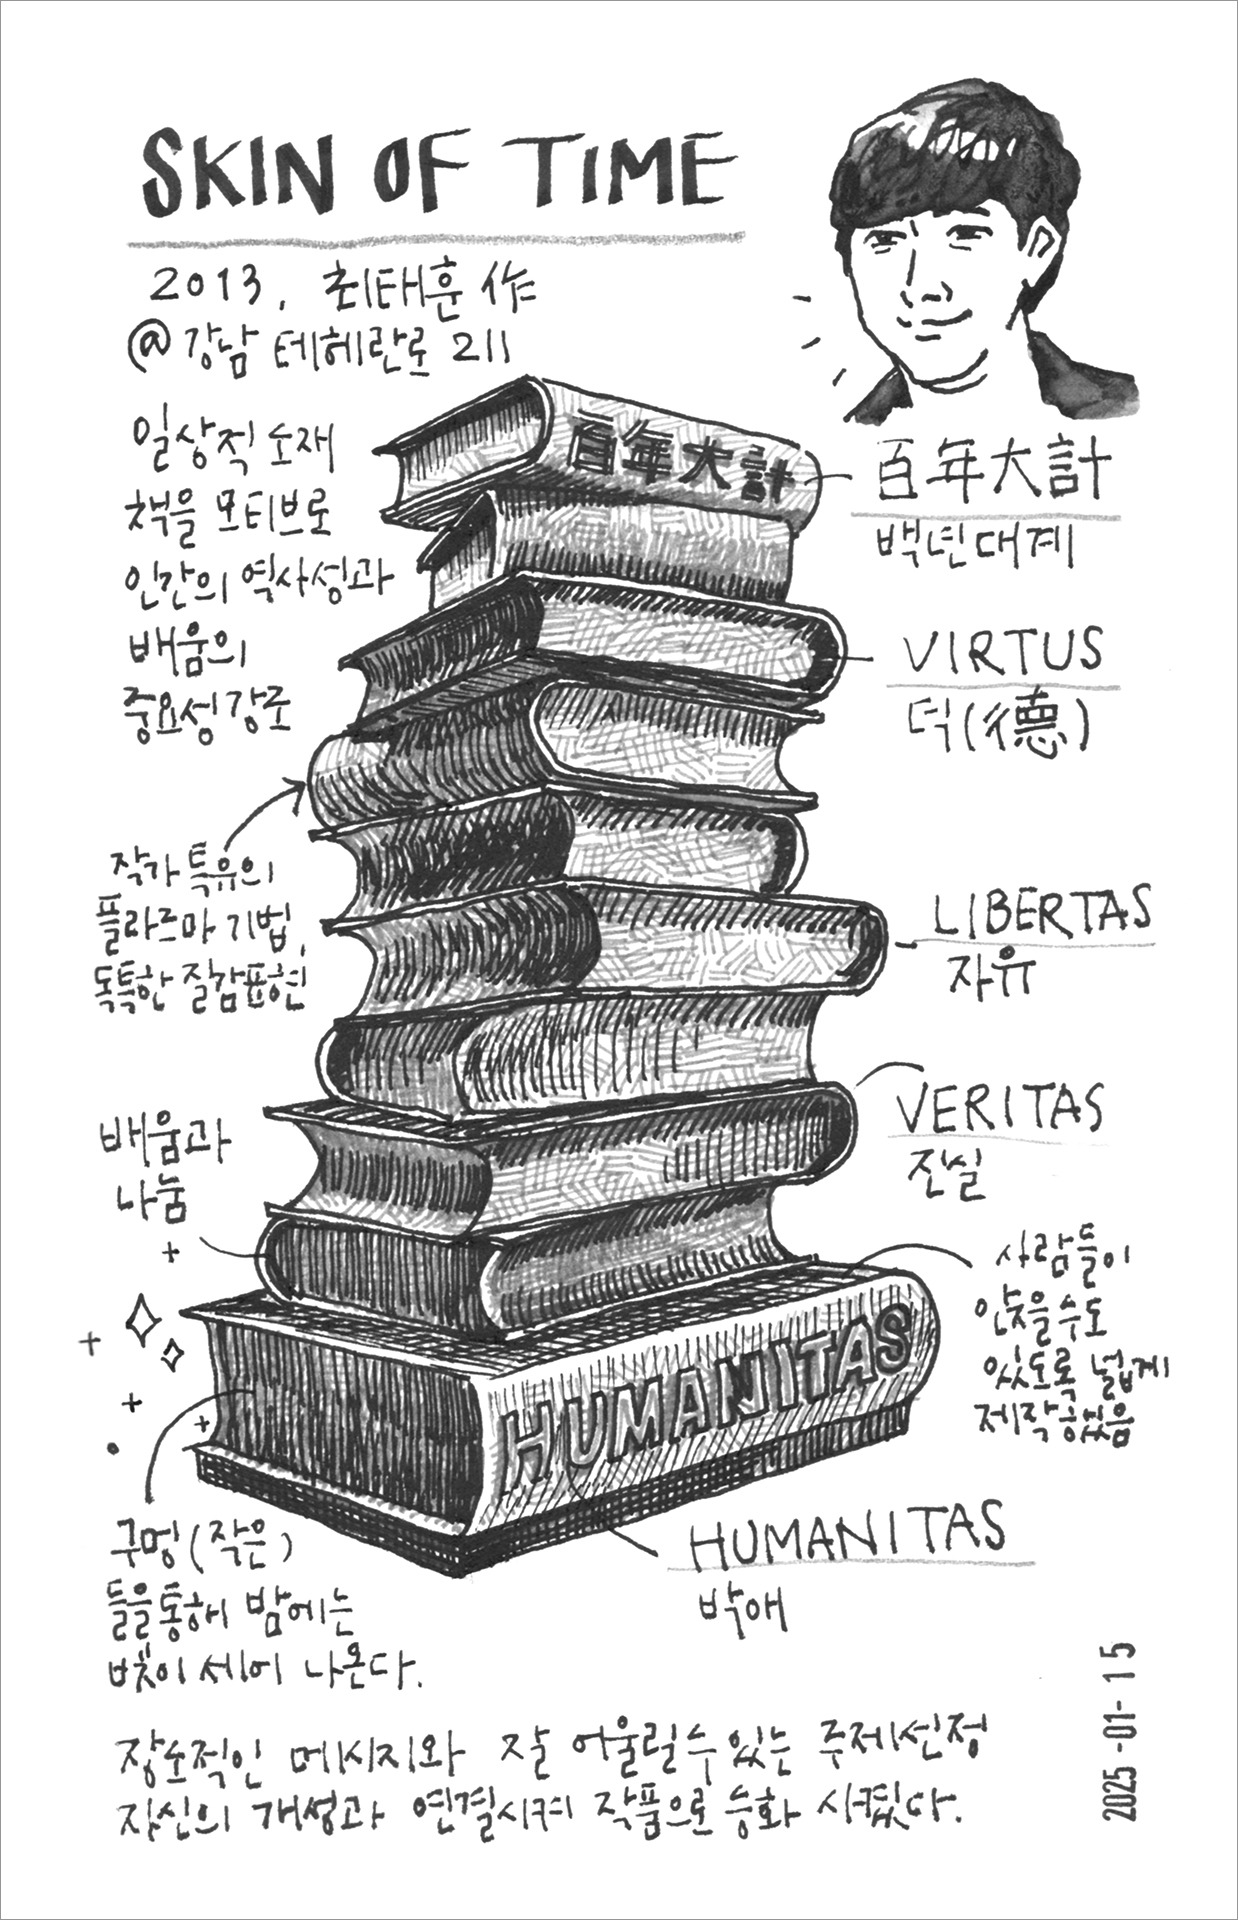 SKIN OF TIME
2013, 최태훈 作
@강남 테헤란로 211
일상적 소재
책을 모티브로
인간의 역사성과
배움의
중요성 강조
百年大計
百年大計
백년대계
VIRTUS
덕(德)
작가 특유의
플라즈마 기법,
독특한 질감표현
LIBERTAS
자유
VERITAS
진실
배움과
나눔
사람들이
앉을수도
있도록 넓게
제작하였음
HUMANITAS
HUMANITAS
박애
구멍(작은)
들을통해 밤에는
빛이 세어 나온다.
장소적인 메시지와 잘 어울릴수있는 주제선정
자신의 개성과 연결시켜 작품으로 승화 시켰다.
2025-01-15